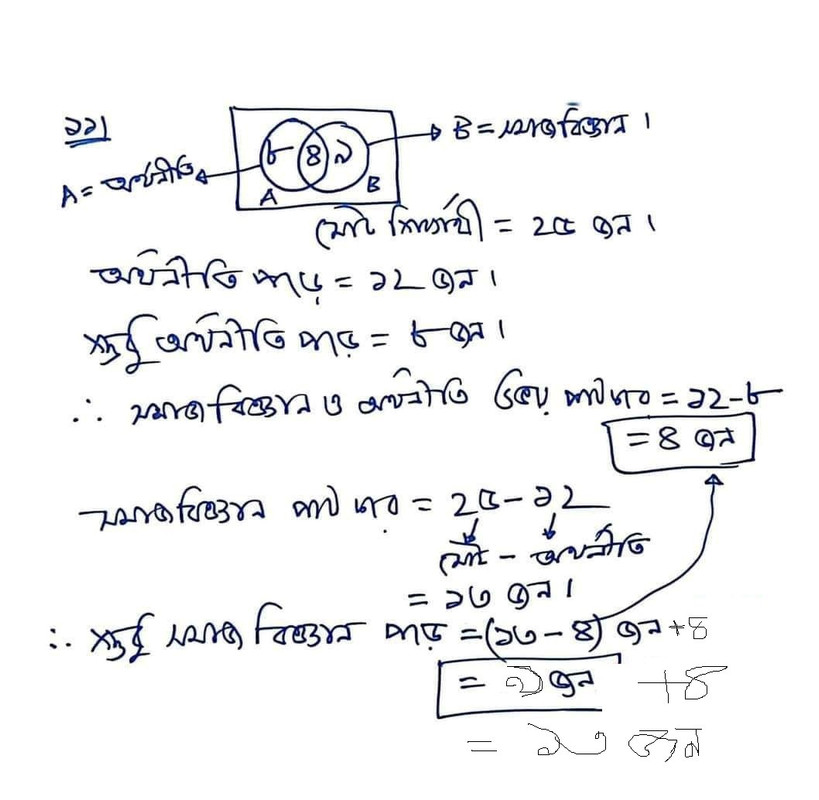 ১১|
B = সমাজবিজ্ঞান ।
A = অর্থনীতি
৮ ৪ ৯
A B
মোট শিক্ষার্থী = ২৫ জন ।
অর্থনীতি পড়ে = ১২ জন ।
শুধু অর্থনীতি পড়ে = ৮ জন ।
∴ সমাজবিজ্ঞান ও অর্থনীতি উভয় পড়ে = ১২-৮
= ৪ জন
সমাজবিজ্ঞান = ২৫ - ১২
মোট - অর্থনীতি
= ১৩ জন ।
∴ শুধু সমাজ বিজ্ঞান পড়ে = (১৩ - ৪) জন +৪
= ৯ জন +৪
= ১৩ জন